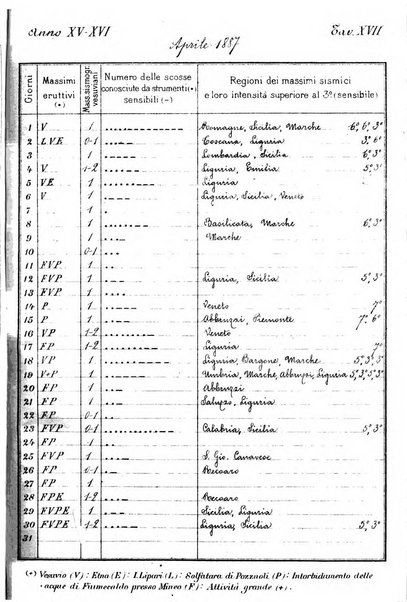 Anno XV-XVI Tav. XVII
Aprile 1887
Giorni Massimi eruttivi (•) Mass. sismogr. vesuviani Numero delle scosse conosciute da strumenti (•) sensibili (–) Regioni dei massimi sismici e loro intensità superiore al 3º (sensibile)
1 V 1 Romagne, Sicilia, Marche 6º, 6º, 3º
2 L V E 0-1 Toscana, Liguria 3º, 6º
3 . 1 Lombardia, Sicilia 6º, 3º
4 V 1-2 Liguria, Emilia 5º, 3º
5 V E 1 Liguria
6 V 1 Liguria, Sicilia, Veneto
7 . 1
8 1 Basilicata, Marche 6º, 3º
9 1 Marche
10 0-1
11 F V P 1
12 F V P 1 Liguria, Sicilia 5º, 3º
13 F V P 1
14 P 1 Veneto 7º
15 P 1 Abbruzzi, Piemonte 7º, 6º
16 V P 1-2 Veneto
17 F P 1-2 Liguria 7º
18 V P 1 Liguria, Bargone, Marche 5º, 3º, 3º
19 V+P 1 Umbria, Marche, Abbruzzi, Liguria 5º, 3º, 5º, 3º
20 F P 1 Abbruzzi
21 F P 1 Saluzzo, Liguria
22 F P 0-1
23 F V P 0-1 Calabria, Sicilia 5º, 3º
24 F P 1
25 F V P 1 S. Gio. Canavese
26 F P 0-1 Recoaro
27 F P 1
28 F P E 1-2 Recoaro
29 F V P E 1 Sicilia, Liguria
30 F V P E 1-2 Liguria, Sicilia 5º, 3º
31
(•) Vesuvio (V): Etna (E): I. Lipari (L): Solfatara di Pozzuoli (P): Intorbidamento delle
acque di Fiumecaldo presso Mineo (F): Attività grande (+).